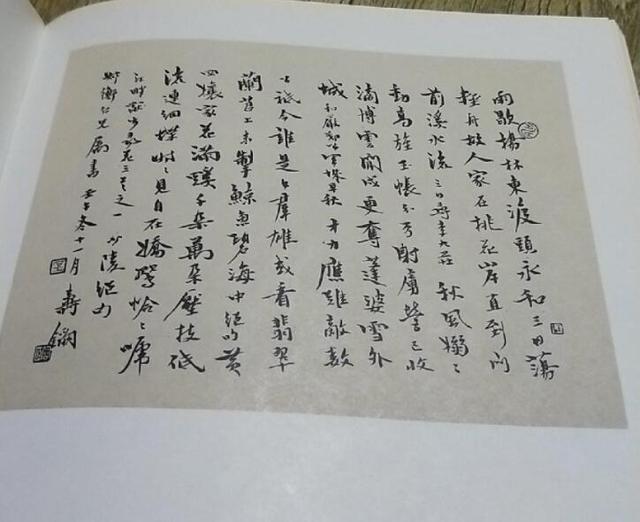 雨歇楊林東渡頭永和三日蕩
輕舟故人家在桃花岸直到門
前溪水流 三日尋李九莊 秋風嫋〻
動高旌玉帳分弓射虜營已收
滴博雲間戍更奪蓬婆雪外
城 和嚴鄭公軍城早秋 才力應難數
公祇今誰是出羣雄或看翡翠
蘭苕上未掣鯨魚碧海中 絕句 黃
四孃家花滿蹊千朵萬朵壓枝低
流連戲蝶時〻見自在嬌鶯恰〻啼
江畔獨步尋花三首之一 少陵絕句
衡仁兄屬書 冬十一月 壽